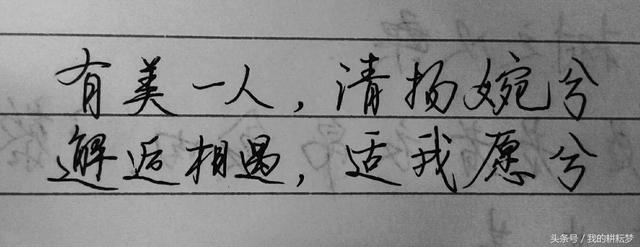 有美一人，清扬婉兮
邂逅相遇，适我愿兮
头条号 / 我的耕耘梦